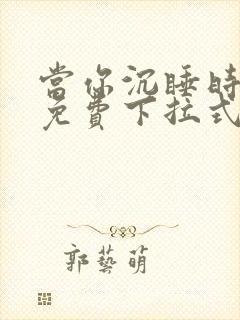 當你沉睡時
免費下拉式
郭藝萌